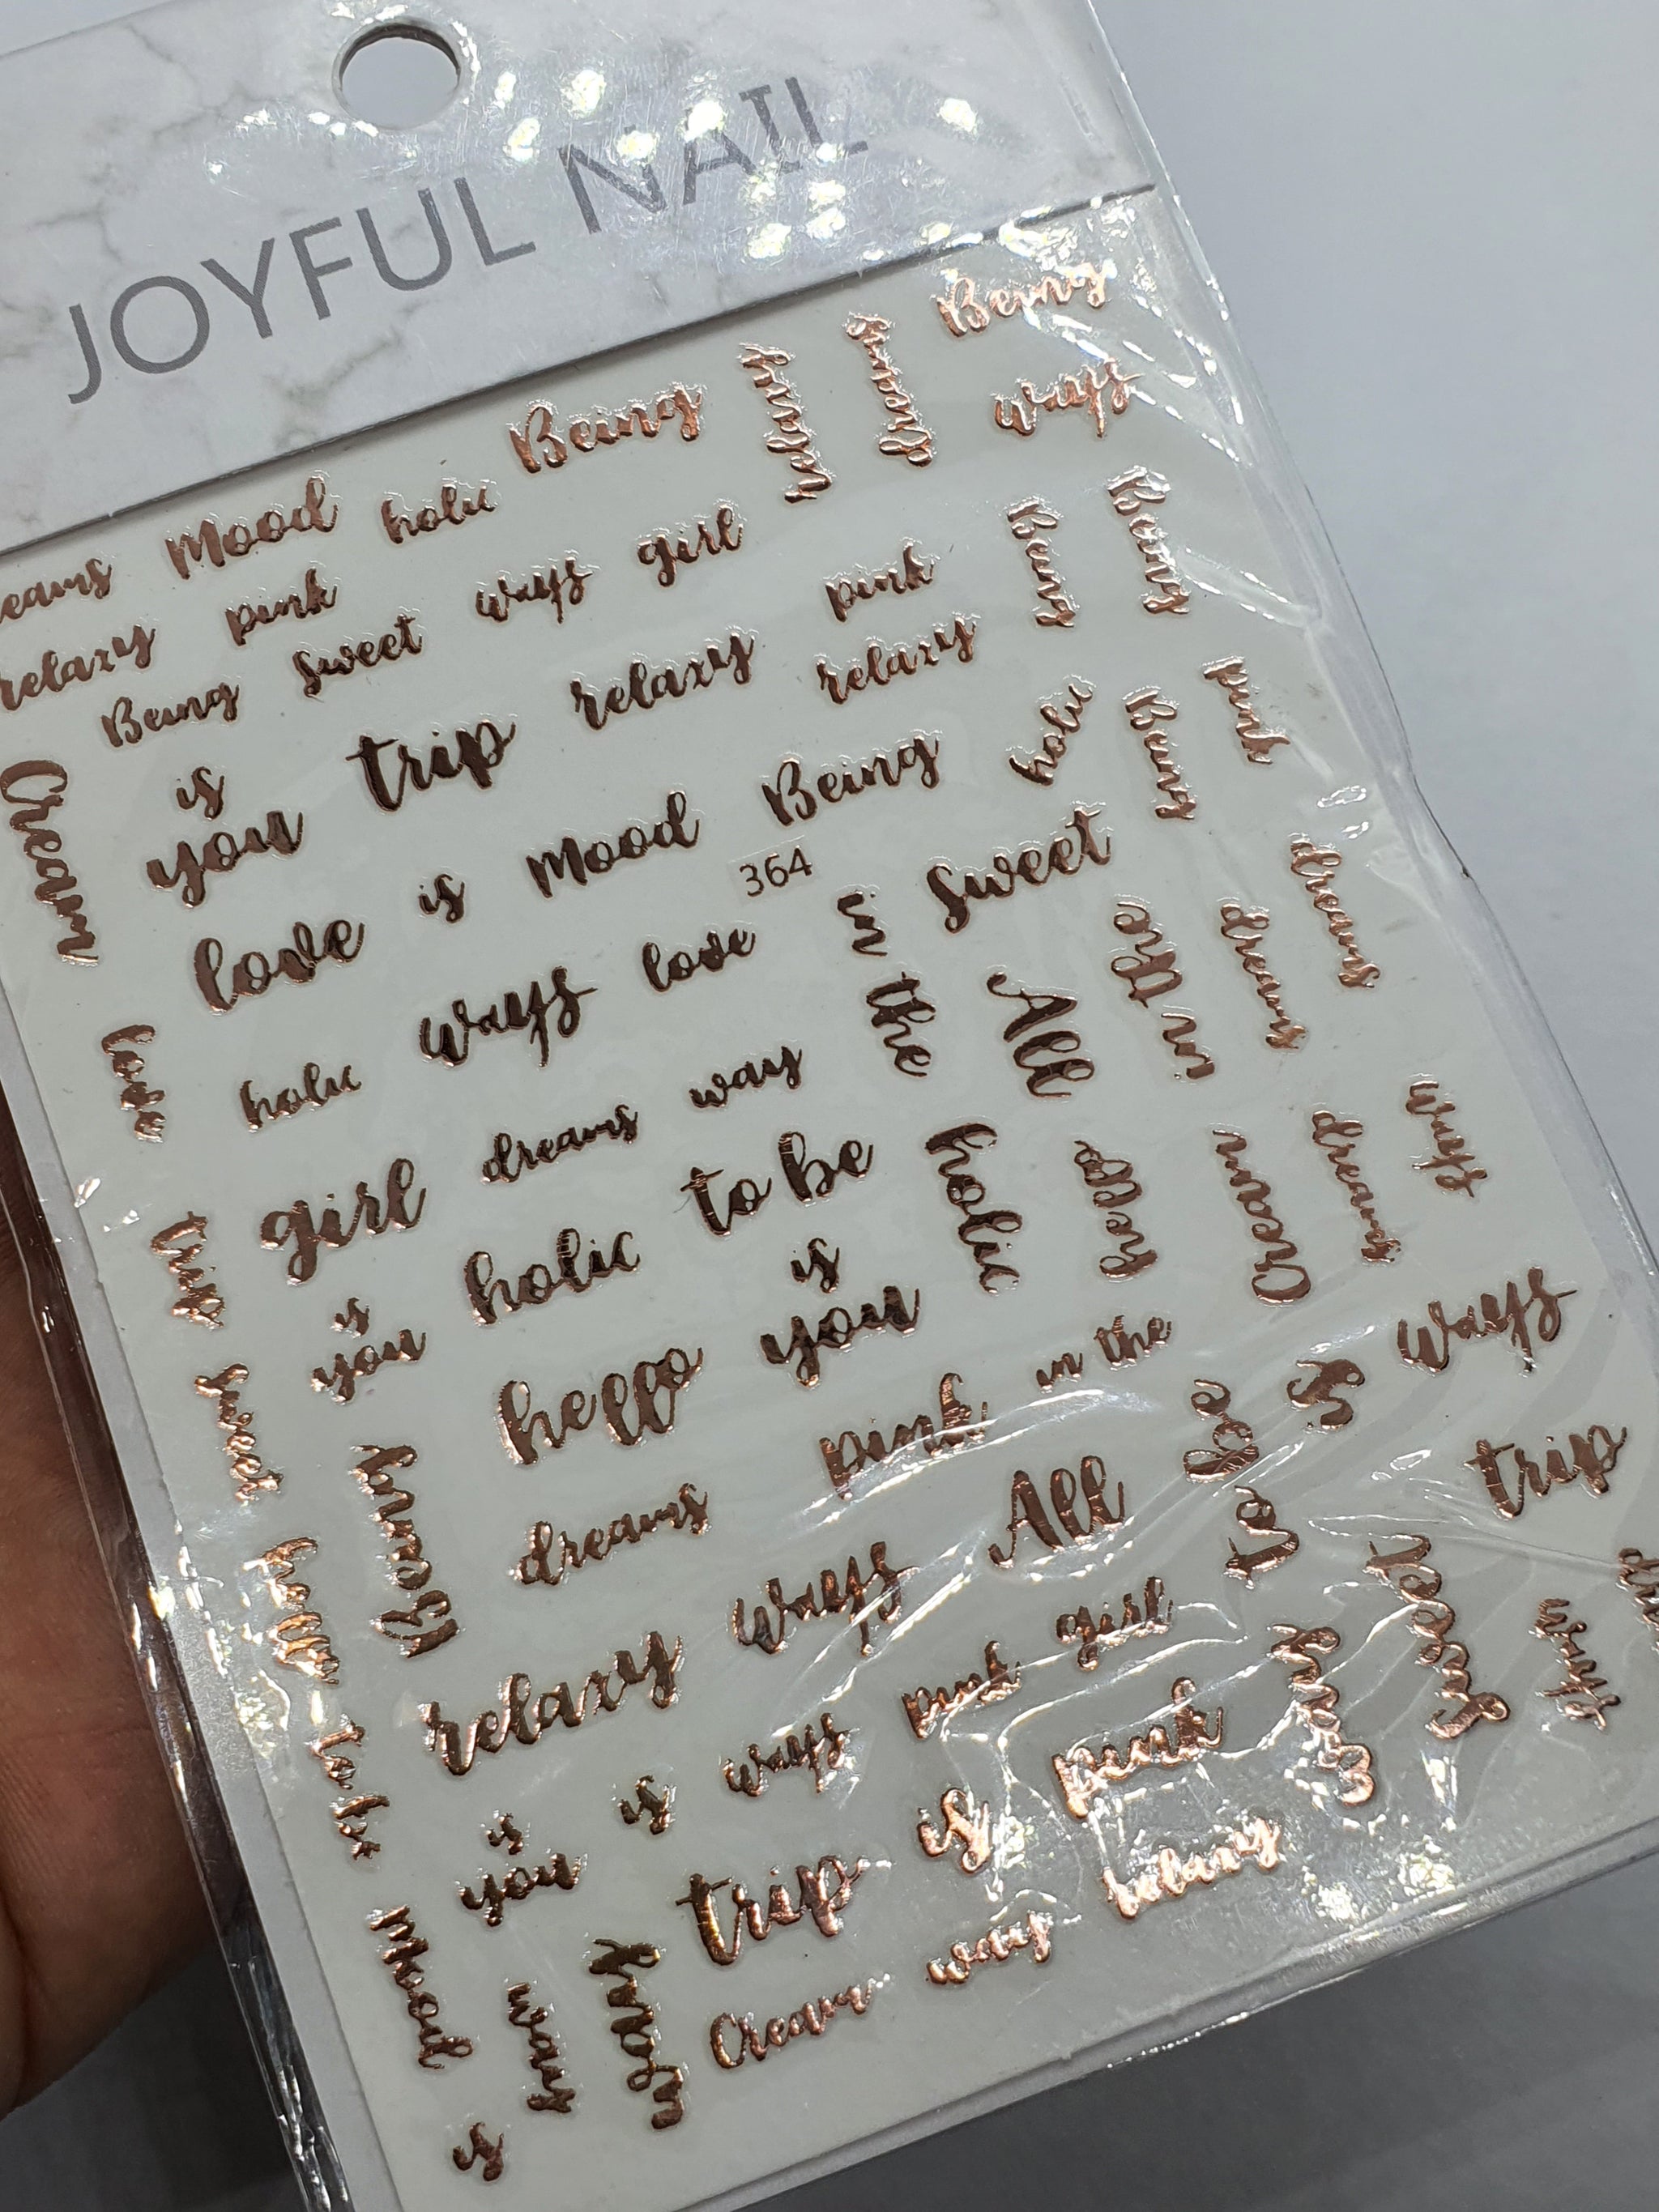 JOYFUL NAIL
Being
Being
ways
Mood
holic
girl
ways
pink
relaxy
sweet
Being
pink
relaxy
relaxy
trip
is
you
Cream
Being
Being
Being
pink
holic
Being
Mood
is
love
364
sweet
in the
love
ways
holic
love
All
in the
dreams
dreams
way
dreams
girl
to be
holic
holic
Cream
dreams
ways
trip
is
you
is
you
hello
in the
pink
sweet
Being
dreams
All
to be
is
ways
trip
hello
ways
relaxy
girl
pink
sweet
ways
to be
is
you
is
ways
pink
trip
is
relaxy
way
Cream
Mood
is